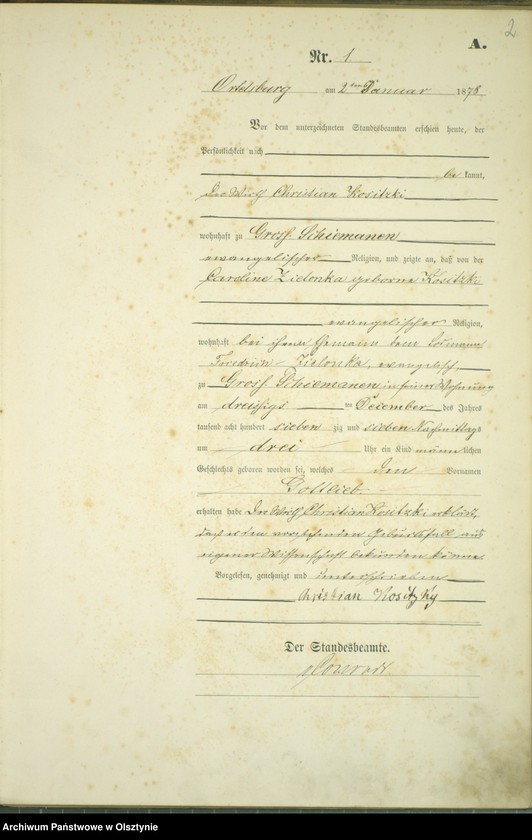 2
A.
Nr. 1
Ortelsburg am 2ten Januar 1878
Vor dem unterzeichneten Standesbeamten erschien heute, der
Persönlichkeit nach
be kannt,
der Wirth Christian Kositzki
wohnhaft zu Gross Schiemanen
evangelischer Religion, und zeigte an, daß von der
Caroline Zielonka geborene Kositzki
evangelischer Religion,
wohnhaft bei ihrem Ehemann dem
Friedrich Zielonka, evangelisch,
zu Gross Schiemanen in seiner Wohnung
am dreissigs ten Dezember des Jahres
tausend acht hundert sieben zig und sieben Nachmittags
um drei Uhr ein Kind männ lichen
Geschlechts geboren worden sei, welches den Vornamen
Gottlieb
erhalten habe Der Wirth Christian Kositzki erklärt,
dass er den vorstehenden Geburtsfall aus
eigener Wissenschaft bekunden könne.
Vorgelesen, genehmigt und unterschrieben
Christian Kositzky
Der Standesbeamte.
Archiwum Państwowe w Olsztynie